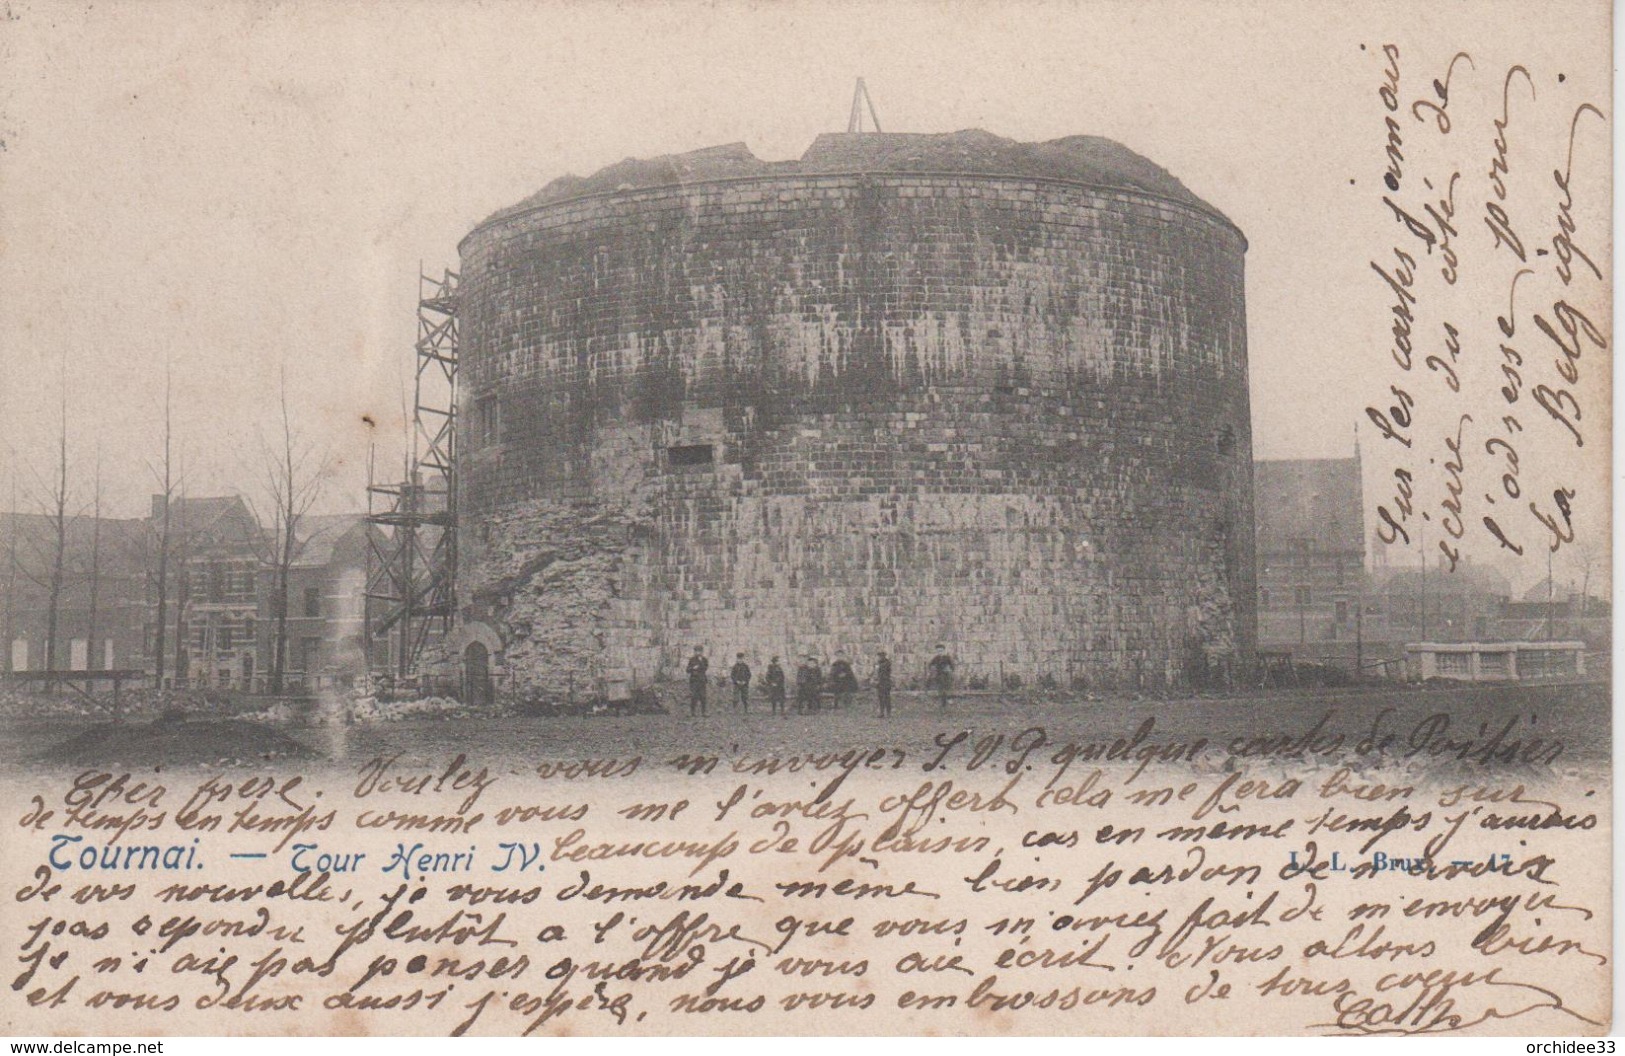 Sur les cartes jamais
écrire du côté de
l'adresse pour
la Belgique
Cher frère. Voulez vous m'envoyer S.V.P. quelque cartes de Poitier
de temps en temps comme vous me l'aviez offert cela me fera bien sur
Tournai. — Tour Henri IV. beaucoup de plaisir, car en même temps j'aurais
L. L. Brux. — 17
de vos nouvelles, je vous demande même bien pardon de n'avoir
pas repondu plutôt a l'offre que vous m'aviez fait de m'envoyer
Je n'i aie pas penser quand je vous aie écrit. Nous allons bien
et vous deux aussi j'espère, nous vous embrassons de tous coeur
delcampe.net
orchidee33